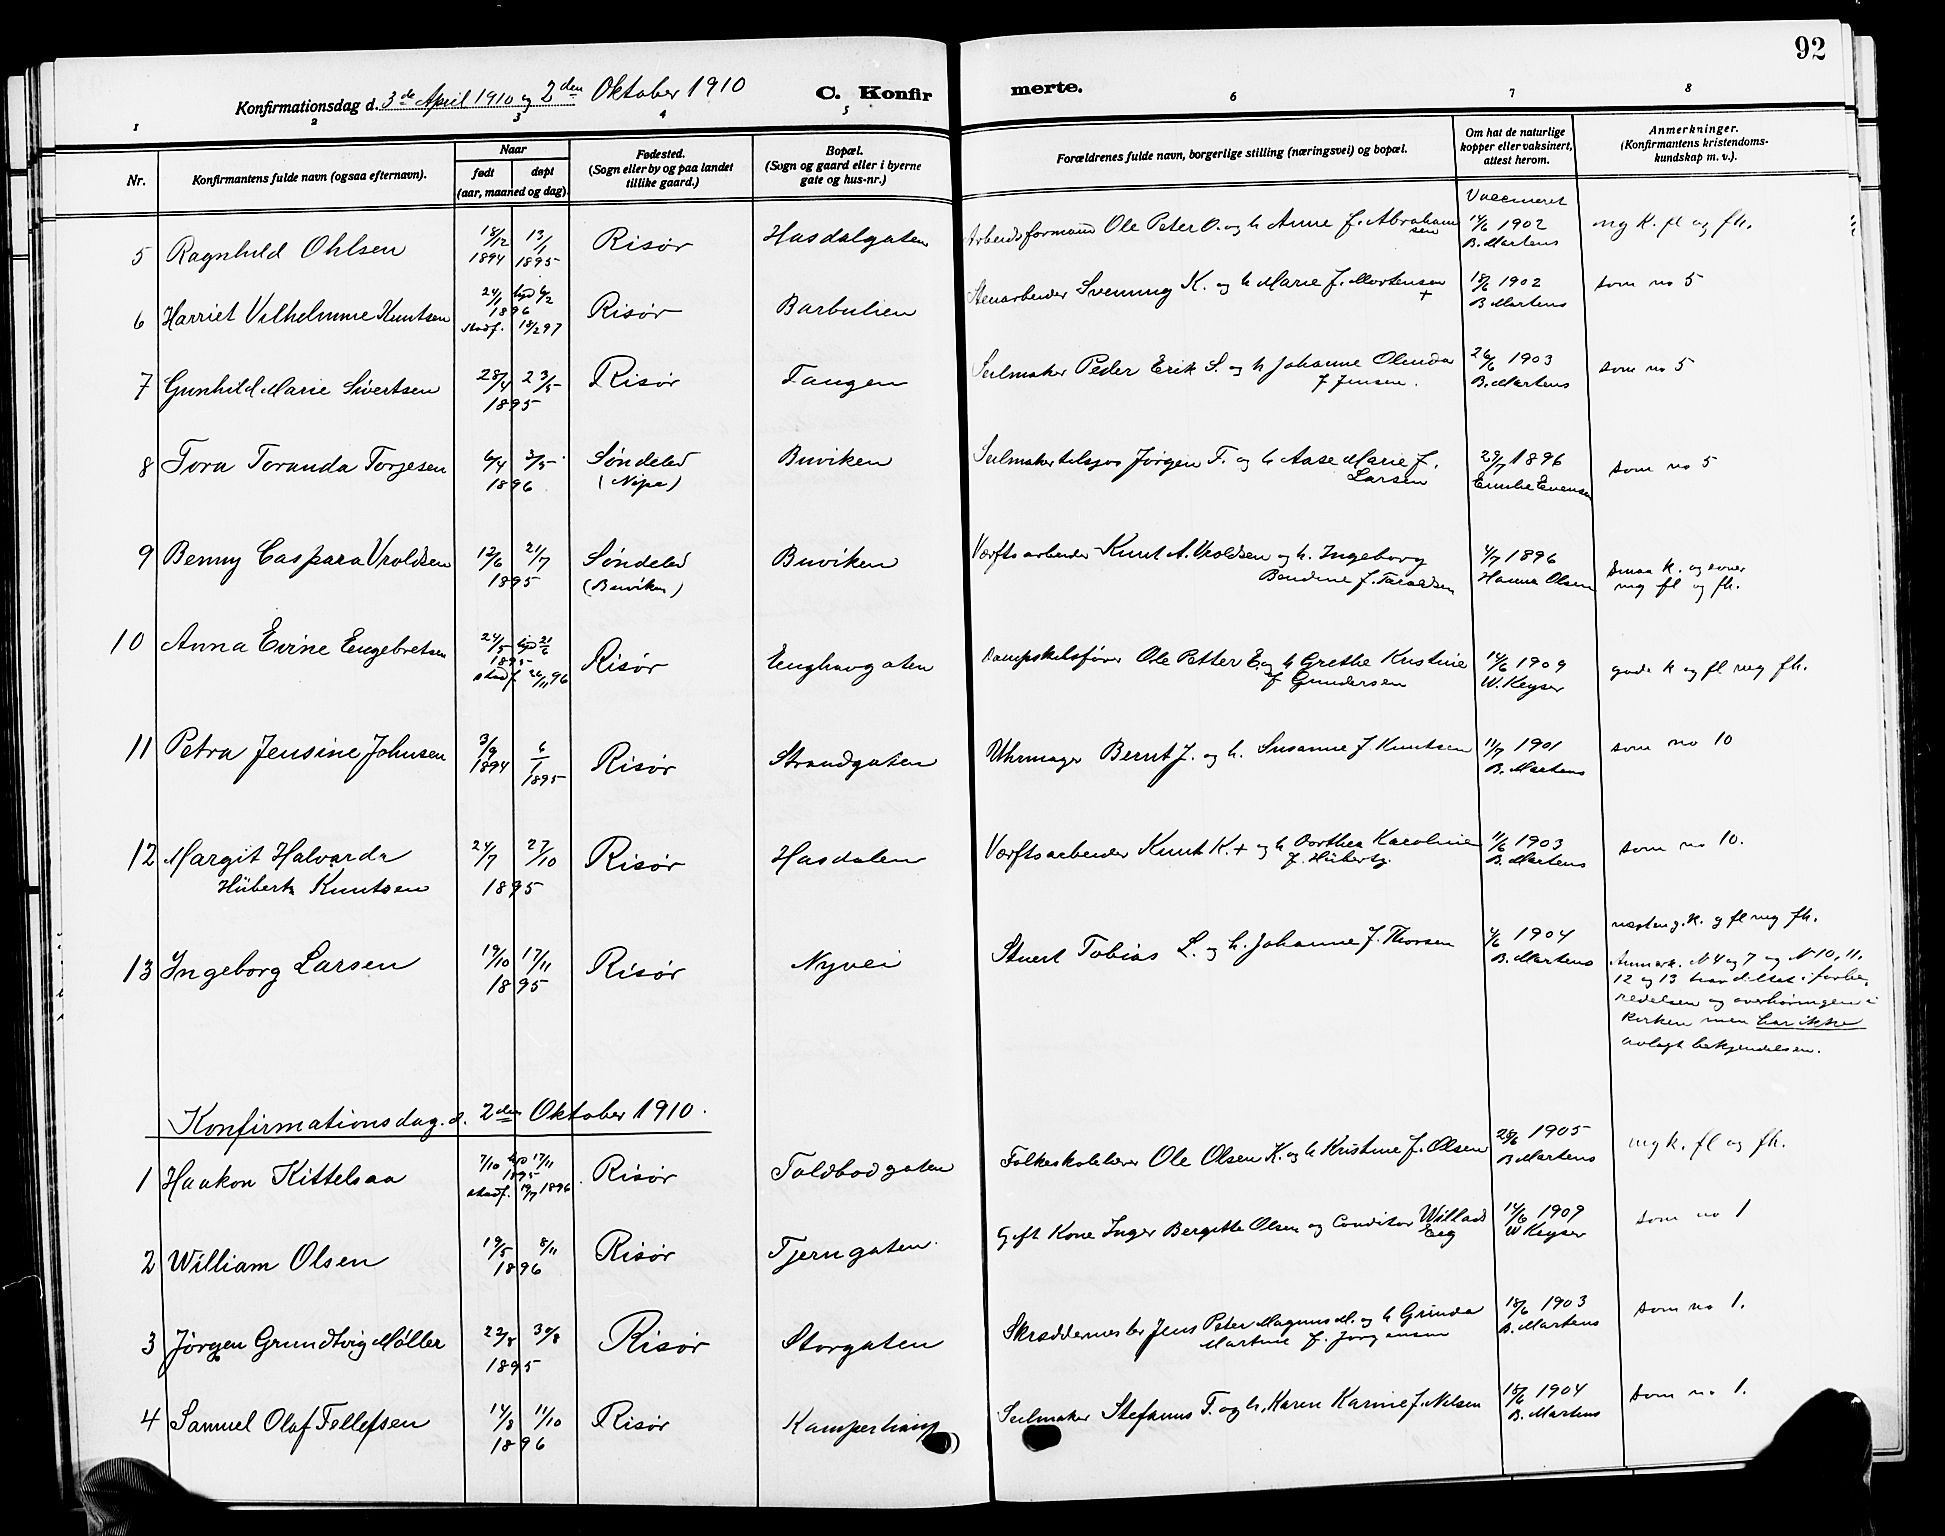 92
Konfirmationsdag d. 3de April 1910 og 2den Oktober 1910 C. Konfirmerte.
1 2 3 4 5 6 7 8
Nr.
Konfirmantens fulde navn (ogsaa efternavn).
Naar
født døpt
(aar, maaned og dag).
Fødested.
(Sogn eller by og paa landet
tillike gaard.)
Bopæl.
(Sogn og gaard eller i byerne
gate og hus-nr.)
Forældrenes fulde navn, borgerlige stilling (næringsvei) og bopæl.
Om hat de naturlige
kopper eller vaksinert,
attest herom.
Anmerkninger.
(Konfirmantens kristendoms-
kundskap m. v.).
Vaccineret
5 Ragnhild Ohlsen 18/12 1894 13/1 1895 Risør Hasdalgaten Arbeidsformand Ole Peter O. og h Anne f. Abraham
sen
14/6 1902
B. Martens
mg k. fl og fh.
6 Harriet Vilhelmine Knutsen 24/1 hjd 6/2
1896
stadf. 18/2 97
Risør Barbulien Stenarbeider Svenning K. og h Marie f. Mortensen
+
18/6 1902
B Martens
som no 5
7 Gunhild Marie Sivertsen 28/4 23/5
1895
Risør Tangen Seilmaker Peder Erik S. og h Johanne Olenda
f Jensen.
26/6 1903
B. Martens
som no 5
8 Tora Toranda Torjesen 6/4 3/5
1896
Søndeled
(Nipe)
Buviken Seilmaker tilsjøs Jørgen T. og h Aase Marie f.
Larsen
29/7 1896
Emilie Evensen
som no 5
9 Benny Caspara Vroldsen 12/6 21/7
1895
Søndeled
(Buviken)
Buviken Værftsarbeider Knut A. Vroldsen og h. Ingeborg
Bendine f. Taraldsen
4/7 1896
Hanna Olsen
smaa k. og evner
mg fl og fh.
10 Anna Evine Engebretsen 24/5 hjd 21/6
1895
stadf. 26/11 96
Risør Enghavgaten Dampskibsfører Ole Petter E. og h Grethe Kristine
f Gundersen
14/6 1909
W. Keyser
gode k og fl mg fh.
11 Petra Jensine Johnsen 3/9 1894 6/1 1895 Risør Strandgaten Uhrmager Bernt J. og h. Susanne f Knutsen 11/7 1901
B. Martens
som no 10
12 Margit Halvarda
Hübertz Knutsen
24/7 27/10
1895
Risør Hasdalen Værftsarbeider Knut K. + og h Dorthea Karoline
f. Hübertz
11/6 1903
B. Martens
som no 10.
13 Ingeborg Larsen 19/10 17/11
1895
Risør Nyvei Stuert Tobias L. og h. Johanne f. Thorsen 4/6 1904
B. Martens
næsten g. k. g fl mg fh.
Anmerk. N 4 og 7 og N 10, 11,
12 og 13 har deltat i forbe-
redelsen og overhøringen i
kirken men har ikke
avlagt bekjendelsen.
Konfirmationsdag. d. 2den Oktober 1910.
1 Haakon Kittelsaa 7/10 hjd 17/11
1895
stadf. 19/7 1896.
Risør Toldbodgaten Folkeskolelærer Ole Olsen K. og h Kristine f. Olsen 28/6 1905
B Martens
mg k. fl og fh.
2 William Olsen 19/5 8/11
1896
Risør Tjerngaten Gift Kone Inger Bergitte Olsen og Conditor Willads
Eeg
14/6 1909
W Keyser
som no 1
3 Jørgen Grundtvig Møller 22/8 30/8
1895
Risør Storgaten Skræddermester Jens Peter Magnus M. og h Grinda
Martine f. Jørgensen
18/6 1903
B. Martens
som no 1.
4 Samuel Olaf Tellefsen 14/8 11/10
1896
Risør Kamperhaug Seilmaker Stefanus T. og h. Karen Karine f. Nilsen 18/6 1904
B. Martens
som no 1.